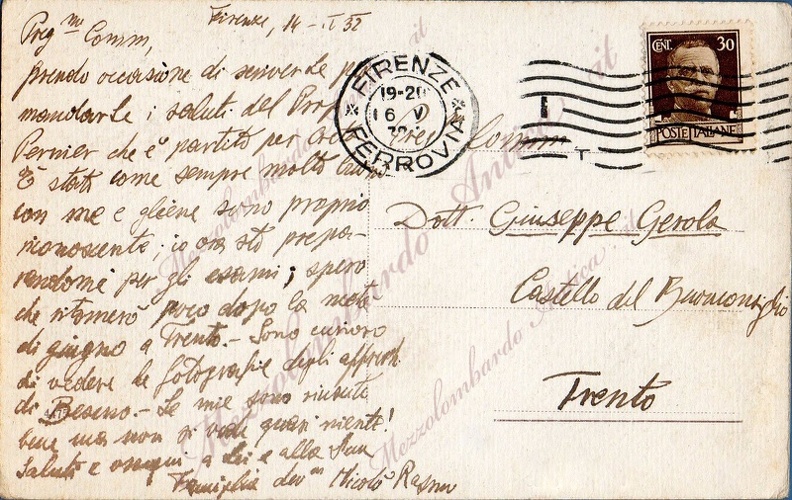 Firenze, 14 - V 32
Preg.mo Comm,
prendo occasione di scriverLe per
mandarLe i saluti del Prof
Pernier che è partito per
È stato come sempre molto buono
con me e gliene sono proprio
riconoscente. io ora sto prepa-
randomi per gli esami; spero
che ritornerò poco dopo la metà
di giugno a Trento - Sono curioso
di vedere le fotografie degli affreschi
di Beseno. - Le mie sono riuscite
bene ma non si vede quasi niente!
Saluti e ossequi a Lei e alla Sua
Famiglia dev.mo Nicolò Rasmo
FIRENZE
19-20
16 V
32
FERROVIA
CENT. 30
POSTE ITALIANE
Comm
Dott. Giuseppe Gerola
Castello del Buonconsiglio
Trento
Mezzolombardo Antica .it
Mezzolombardo Antica .it